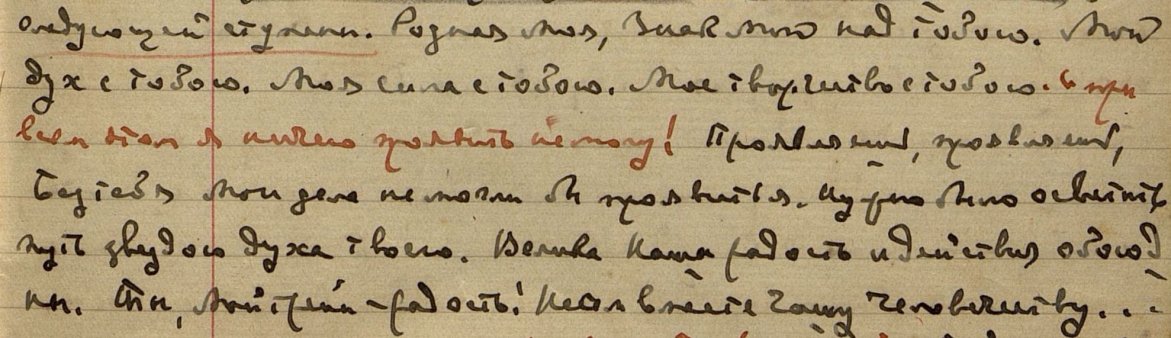 следующей ступени. Родная моя, Знак мой над тобою. Мой
дух с тобою. Моя сила с тобою. Мое творчество с тобою. И при
всем этом я ничего проявить не могу! Проявляешь, проявляешь,
без тебя мои дела не могли бы проявиться. Нужно было осветить
путь звездою духа твоего. Велика Наша радость и действия обоюд
ны. Ты, Мой – радость! Несем вместе Чашу человечеству...